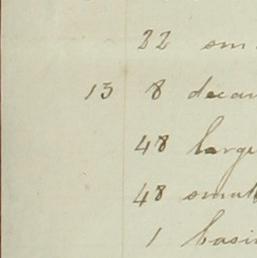 22 sm
13 8 decan
48 large
48 small
1 basin